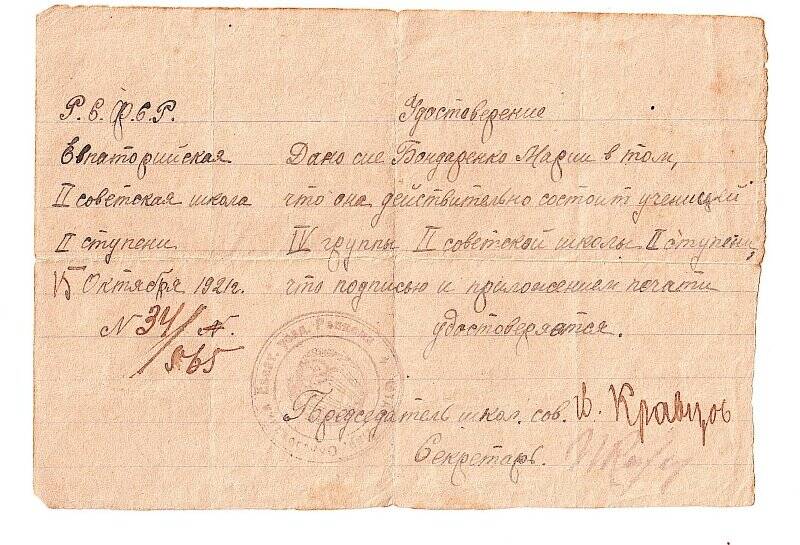 Р.С.Ф.С.Р.
Евпаторийская
II советская школа
II ступени
15 Октября 1921г.
N 34/565
Удостоверение
Дано сие Бондаренко Марии в том,
что она действительно состоит ученицей
IV группы II советской школы II ступени,
что подписью и приложением печати
удостоверяется.
Председатель школ. сов. И. Кравцов
Секретарь.